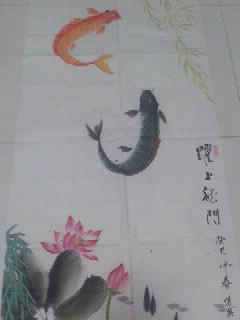 躍上龍門
癸巳仲春